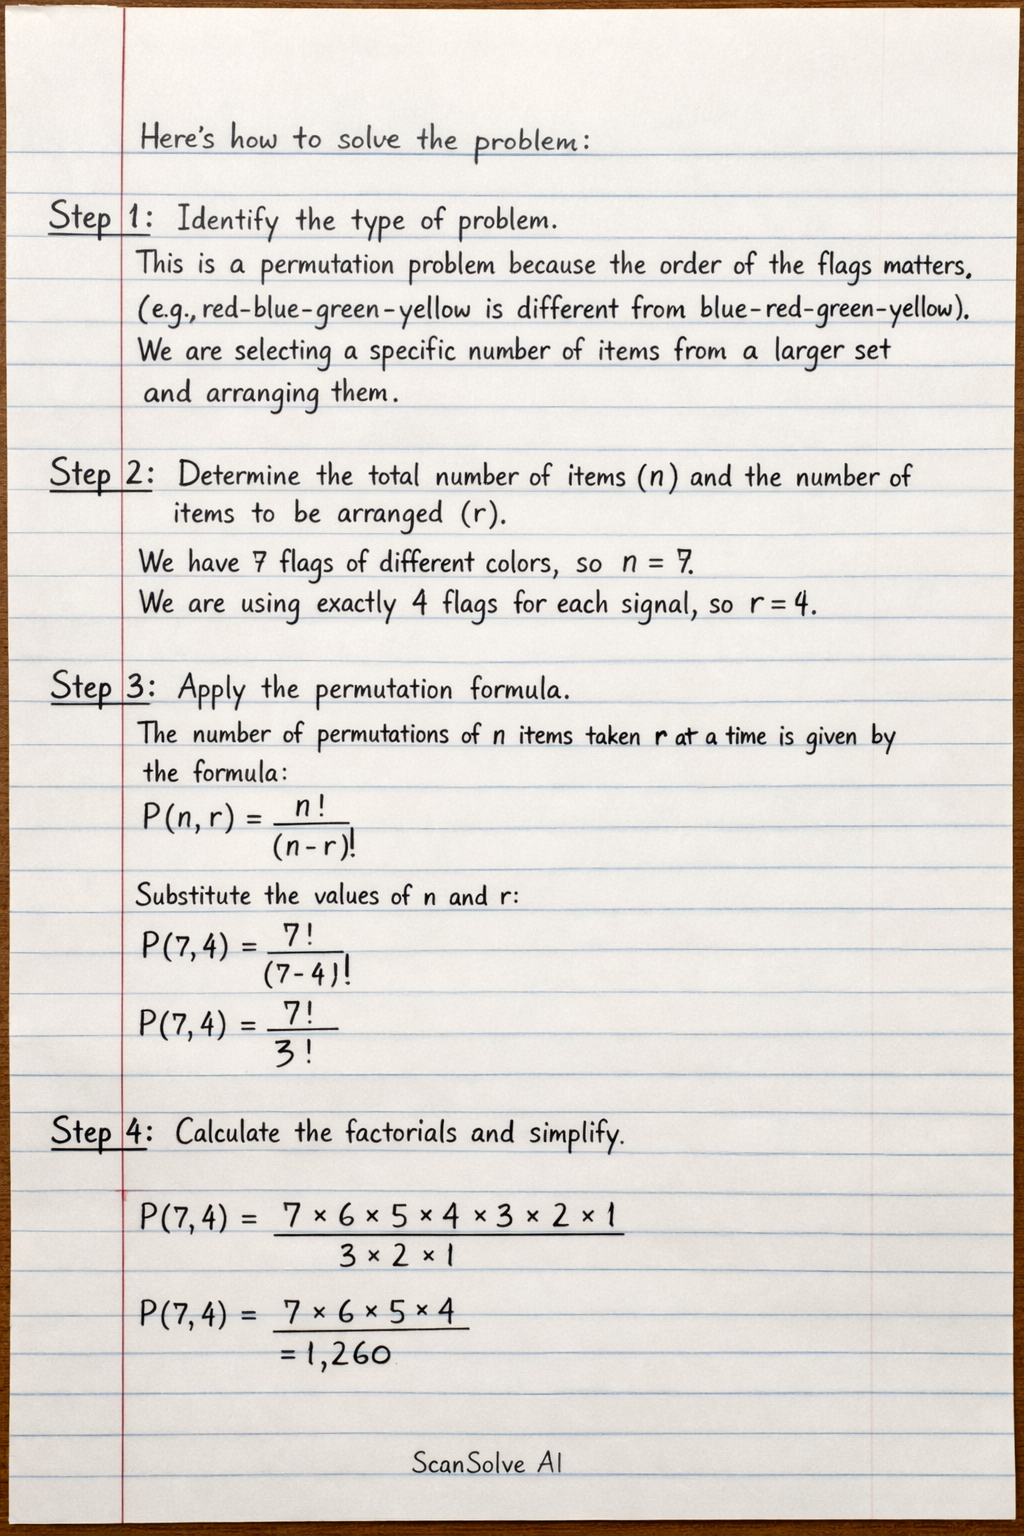 Here's how to solve the problem:
Step 1: Identify the type of problem.
This is a permutation problem because the order of the flags matters.
(e.g., red-blue-green-yellow is different from blue-red-green-yellow).
We are selecting a specific number of items from a larger set
and arranging them.
Step 2: Determine the total number of items (n) and the number of
items to be arranged (r).
We have 7 flags of different colors, so n = 7.
We are using exactly 4 flags for each signal, so r = 4.
Step 3: Apply the permutation formula.
The number of permutations of n items taken r at a time is given by
the formula:
P(n, r) = n! / (n - r)!
Substitute the values of n and r:
P(7, 4) = 7! / (7 - 4)!
P(7, 4) = 7! / 3!
Step 4: Calculate the factorials and simplify.
P(7, 4) = 7 × 6 × 5 × 4 × 3 × 2 × 1
3 × 2 × 1
P(7, 4) = 7 × 6 × 5 × 4
= 1,260
ScanSolve AI